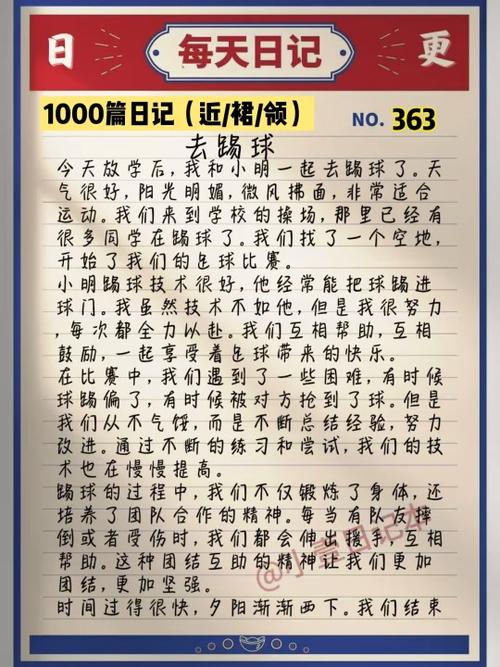 日 每天日记 更
1000篇日记（近/裙/领） NO. 363
去踢球
今天放学后，我和小明一起去踢球了。天
气很好，阳光明媚，微风拂面，非常适合
运动。我们来到学校的操场，那里已经有
很多同学在踢球了。我们找了一个空地，
开始了我们的足球比赛。
小明踢球技术很好，他经常能把球踢进
球门。我虽然技术不如他，但是我很努力
，每次都全力以赴。我们互相帮助，互相
鼓励，一起享受着足球带来的快乐。
在比赛中，我们遇到了一些困难，有时候
球踢偏了，有时候被对方抢到了球。但是
我们从不气馁，而是不断总结经验，努力
改进。通过不断的练习和尝试，我们的技
术也在慢慢提高。
踢球的过程中，我们不仅锻炼了身体，还
培养了团队合作的精神。每当有队友摔
倒或者受伤时，我们都会伸出援手，互相
帮助。这种团结互助的精神让我们更加
团结，更加坚强。
时间过得很快，夕阳渐渐西下。我们结束
@小壹日记本